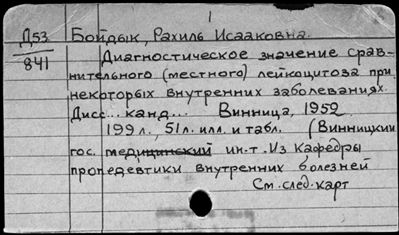 1
Д53 Бойдык, Рахиль Исааковна.
841 Диагностическое значение срав-
нительного (местного) лейкоцитоза при
некоторых внутренних заболеваниях.
Дисс... канд... Винница, 1952.
199 л., 51 л. илл. и табл. (Винницкий
гос. медицинский ин-т. Из Кафедры
пропедевтики внутренних болезней
См. след. карт